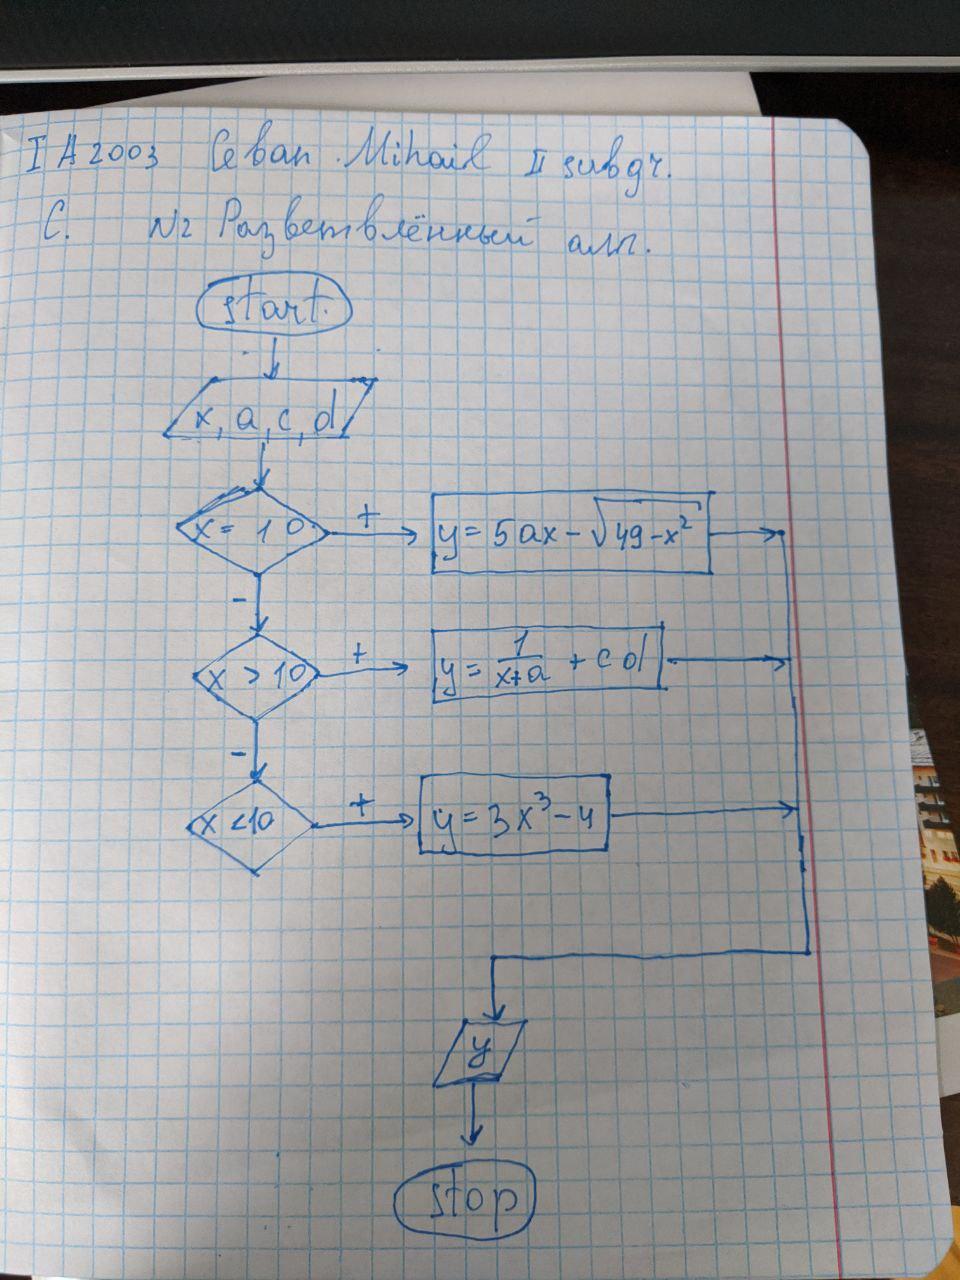 IA2003 Cеван Mihail II
C. N2 Разветвлённый алг.
start.
x, a, c, d
x = 10 + y = 5ax - √49 - x²
-
x > 10 + y = 1/x+a + cd
-
x < 10 + y = 3x³ - 4
y
stop